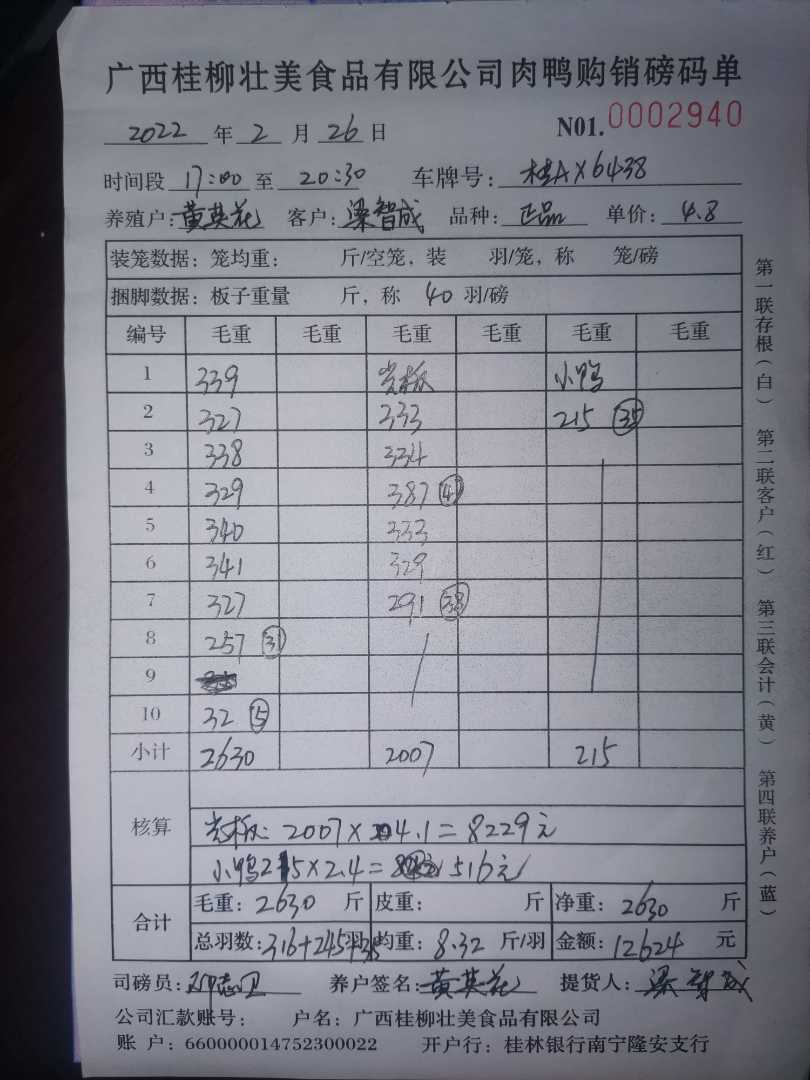 广西桂柳壮美食品有限公司肉鸭购销磅码单
2022 年 2 月 26 日 N01.0002940
时间段 17:00 至 20:30 车牌号: 桂AX6438
养殖户: 黄英花 客户: 梁智成 品种: 正品 单价: 4.8
装笼数据: 笼均重: 斤/空笼, 装 羽/笼, 称 笼/磅
捆脚数据: 板子重量 斤, 称 40 羽/磅
编号 毛重 毛重 毛重 毛重 毛重 毛重
1 339 光板 小鸭
2 327 333 215 (35)
3 338 334
4 329 387
5 340 333
6 341 329
7 327 291 (38)
8 257 (31)
9
10 32 (5)
小计 2630 2007 215
核算
光板: 2007× 4.1=8229元
小鸭215×2.4= 516元
合计
毛重: 2630 斤 皮重: 斤 净重: 2630 斤
总羽数: 316+245羽+35 均重: 8.32 斤/羽 金额: 12624 元
司磅员: 养户签名: 黄英花 提货人: 梁智成
公司汇款账号: 户名: 广西桂柳壮美食品有限公司
账 户: 660000014752300022 开户行: 桂林银行南宁隆安支行
第一联存根(白) 第二联客户(红) 第三联会计(黄) 第四联养户(蓝)